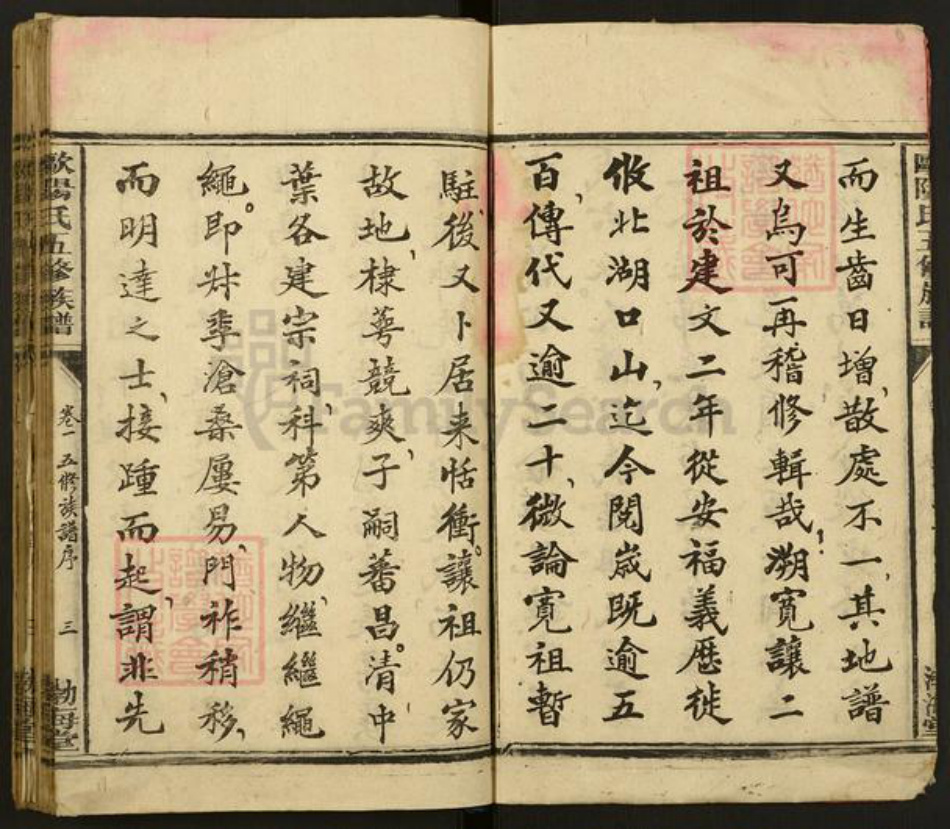 而生齒日增散處不一其地譜
又烏可再稽修輯哉溯寬讓二
祖於建文二年從安福義歷徙
攸北湖口山迄今閱歲既逾五
百傳代又逾二十微論寬祖暫
駐後又卜居来恬衝讓祖仍家
故地棣萼競爽子嗣蕃昌清中
葉各建宗祠科第人物繼繼繩
繩即丼季滄桑屢易門祚稍移
而明達之士接踵而起謂非先
歐陽氏五修族譜
卷一 五修族譜序 三 勃海堂
FamilySearch